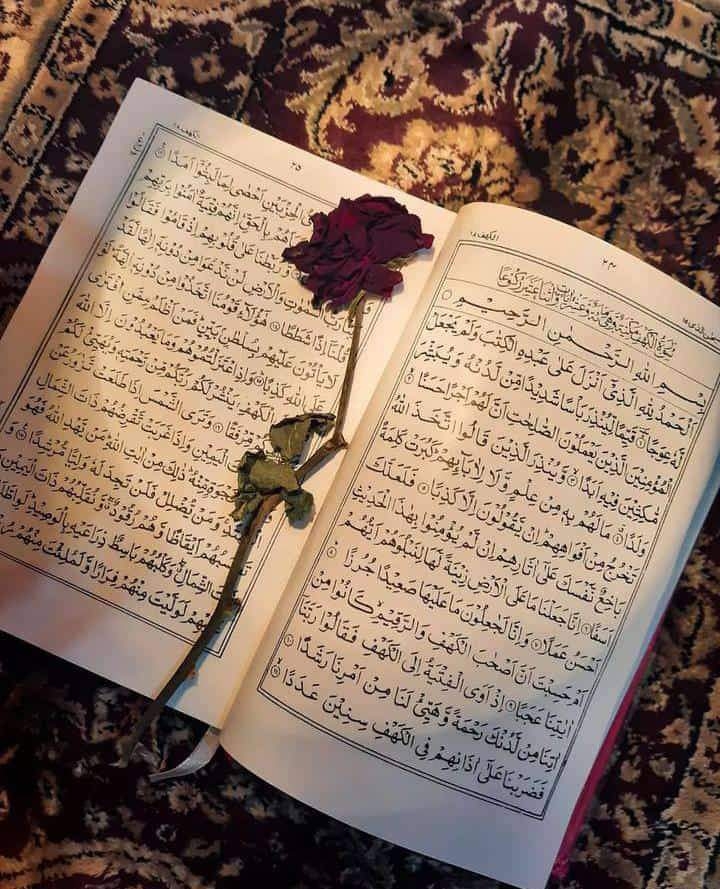 الكهف ١٨
بِسْمِ اللهِ الرَّحْمٰنِ الرَّحِيْمِ
اَلْحَمْدُ لِلّٰهِ الَّذِيْٓ اَنْزَلَ عَلٰى عَبْدِهِ الْكِتٰبَ وَلَمْ يَجْعَلْ
لَّهٗ عِوَجًا ① قَيِّمًا لِّيُنْذِرَ بَاْسًا شَدِيْدًا مِّنْ لَّدُنْهُ وَيُبَشِّرَ
الْمُؤْمِنِيْنَ الَّذِيْنَ يَعْمَلُوْنَ الصّٰلِحٰتِ اَنَّ لَهُمْ اَجْرًا حَسَنًا ②
مَّاكِثِيْنَ فِيْهِ اَبَدًا ③ وَّيُنْذِرَ الَّذِيْنَ قَالُوا اتَّخَذَ اللّٰهُ
وَلَدًا ④ مَا لَهُمْ بِهٖ مِنْ عِلْمٍ وَّلَا لِاٰبَآئِهِمْ كَبُرَتْ كَلِمَةً
تَخْرُجُ مِنْ اَفْوَاهِهِمْ اِنْ يَّقُوْلُوْنَ اِلَّا كَذِبًا ⑤ فَلَعَلَّكَ
بَاخِعٌ نَّفْسَكَ عَلٰٓى اٰثَارِهِمْ اِنْ لَّمْ يُؤْمِنُوْا بِهٰذَا الْحَدِيْثِ
اَسَفًا ⑥ اِنَّا جَعَلْنَا مَا عَلَى الْاَرْضِ زِيْنَةً لَّهَا لِنَبْلُوَهُمْ اَيُّهُمْ
اَحْسَنُ عَمَلًا ⑦ وَاِنَّا لَجٰعِلُوْنَ مَا عَلَيْهَا صَعِيْدًا جُرُزًا ⑧
اَمْ حَسِبْتَ اَنَّ اَصْحٰبَ الْكَهْفِ وَالرَّقِيْمِ كَانُوْا مِنْ
اٰيٰتِنَا عَجَبًا ⑨ اِذْ اَوَى الْفِتْيَةُ اِلَى الْكَهْفِ فَقَالُوْا رَبَّنَآ
اٰتِنَا مِنْ لَّدُنْكَ رَحْمَةً وَّهَيِّئْ لَنَا مِنْ اَمْرِنَا رَشَدًا ⑩
فَضَرَبْنَا عَلٰٓى اٰذَانِهِمْ فِي الْكَهْفِ سِنِيْنَ عَدَدًا ⑪
الكهف ١٨
الْحِزْبَيْنِ اَحْصٰى لِمَا لَبِثُوْٓا اَمَدًا ⑫
بِالْحَقِّ اِنَّهُمْ فِتْيَةٌ اٰمَنُوْا بِرَبِّهِمْ
وَّرَبَطْنَا عَلٰى قُلُوْبِهِمْ اِذْ قَامُوْا فَقَالُوْا
رَبُّ السَّمٰوٰتِ وَالْاَرْضِ لَنْ نَّدْعُوَا مِنْ دُوْنِهٖٓ اِلٰهًا لَّقَدْ
قُلْنَآ اِذًا شَطَطًا ⑭ هٰٓؤُلَآءِ قَوْمُنَا اتَّخَذُوْا مِنْ دُوْنِهٖٓ اٰلِهَةً لَوْ
لَا يَاْتُوْنَ عَلَيْهِمْ بِسُلْطٰنٍ بَيِّنٍ فَمَنْ اَظْلَمُ مِمَّنِ افْتَرٰى
عَلَى اللّٰهِ كَذِبًا ⑮ وَاِذِ اعْتَزَلْتُمُوْهُمْ وَمَا يَعْبُدُوْنَ اِلَّا اللّٰهَ
الْكَهْفِ يَنْشُرْ لَكُمْ رَبُّكُمْ مِّنْ رَّحْمَتِهٖ وَيُهَيِّئْ لَكُمْ
مِّرْفَقًا ⑯ وَتَرَى الشَّمْسَ اِذَا طَلَعَتْ تَّزٰوَرُ عَنْ
الْيَمِيْنِ وَاِذَا غَرَبَتْ تَّقْرِضُهُمْ ذَاتَ الشِّمَالِ
فَجْوَةٍ مِّنْهُ ذٰلِكَ مِنْ اٰيٰتِ اللّٰهِ مَنْ يَّهْدِ اللّٰهُ فَهُوَ
وَمَنْ يُّضْلِلْ فَلَنْ تَجِدَ لَهٗ وَلِيًّا مُّرْشِدًا ⑰
وَتَحْسَبُهُمْ اَيْقَاظًا وَّهُمْ رُقُوْدٌ وَّنُقَلِّبُهُمْ ذَاتَ الْيَمِيْنِ
الشِّمَالِ وَكَلْبُهُمْ بَاسِطٌ ذِرَاعَيْهِ بِالْوَصِيْدِ لَوِ اطَّلَعْتَ
عَلَيْهِمْ لَوَلَّيْتَ مِنْهُمْ فِرَارًا وَّلَمُلِئْتَ مِنْهُمْ